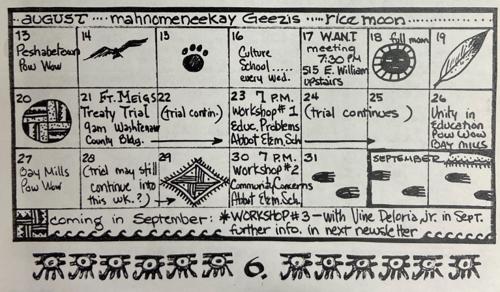 AUGUST .... mahnomeneekay Geezis .... rice moon
13
Peshabetown
Pow Wow
14
15
16
Culture
School .....
every Wed.
17 W.A.N.T
meeting
7:30 PM
515 E. William
upstairs
18 full moon
19
20
21 Ft. Meigs
Treaty Trial
9am Washtenaw
County Bldg.
22
(trial contin.)
23 7 P.M.
Workshop #1
Educ. Problems
Abbot Elem. Sch.
24
(trial continues)
25
26
Unity in
Education
Pow Wow
Bay Mills
27
Bay Mills
Pow Wow
28
(Trial may still
continue into
this wk.?)
29
30 7 P.M.
Workshop #2
Community Concerns
Abbot Elem. Sch.
31
SEPTEMBER
coming in September: *WORKSHOP #3 - with Vine Deloria, jr. in Sept.
further info. in next newsletter
6